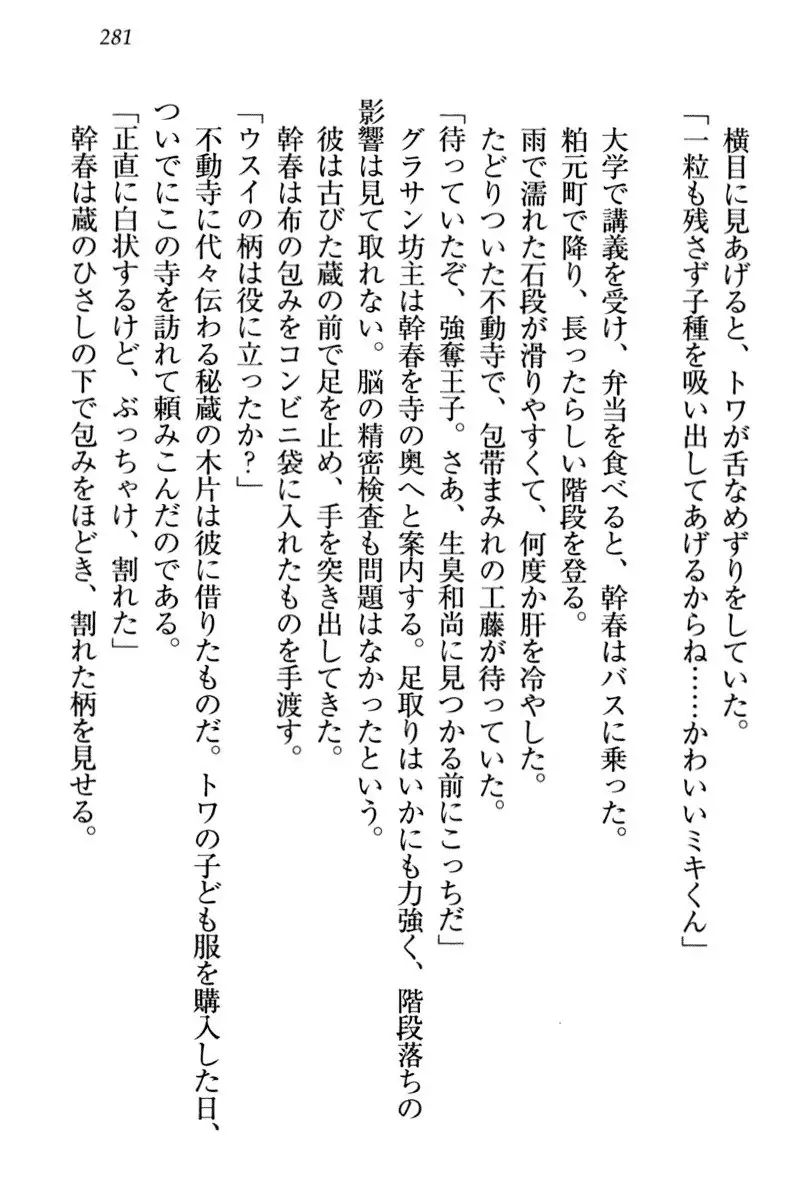 281
大学で講義を受け、弁当を食べると、幹春はバスに乗った。
粕元町で降り、長ったらしい階段を登る。
雨で濡れた石段が滑りやすくて、何度か肝を冷やした。
たどりついた不動寺で、包帯まみれの工藤が待っていた。
「待っていたぞ、強奪王子。さあ、生臭和尚に見つかる前にこっちだ」
グラサン坊主は幹春を寺の奥へと案内する。足取りはいかにも力強く、階段落ちの
影響は見て取れない。脳の精密検査も問題はなかったという。
彼は古びた蔵の前で足を止め、手を突き出してきた。
幹春は布の包みをコンビニ袋に入れたものを手渡す。
「ウスイの柄は役に立ったか？」
不動寺に代々伝わる秘蔵の木片は彼に借りたものだ。トワの子ども服を購入した日、
ついでにこの寺を訪れて頼みこんだのである。
「正直に白状するけど、ぶっちゃけ、割れた」
幹春は蔵のひさしの下で包みをほどき、割れた柄を見せる。